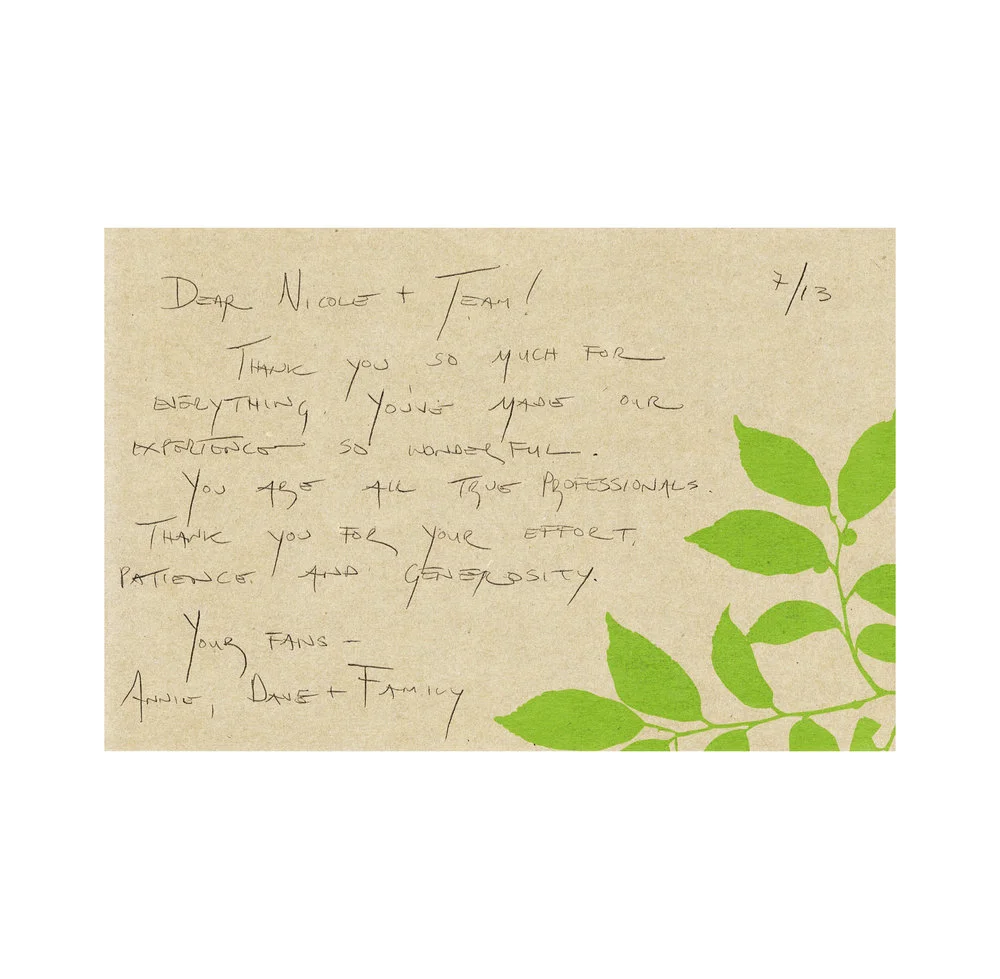 Dear Nicole + Team! 7/13
Thank you so much for
everything. You've made our
experience so wonderful.
You are all true professionals.
Thank you for your effort,
patience and generosity.
Your fans –
Annie, Dave + Family